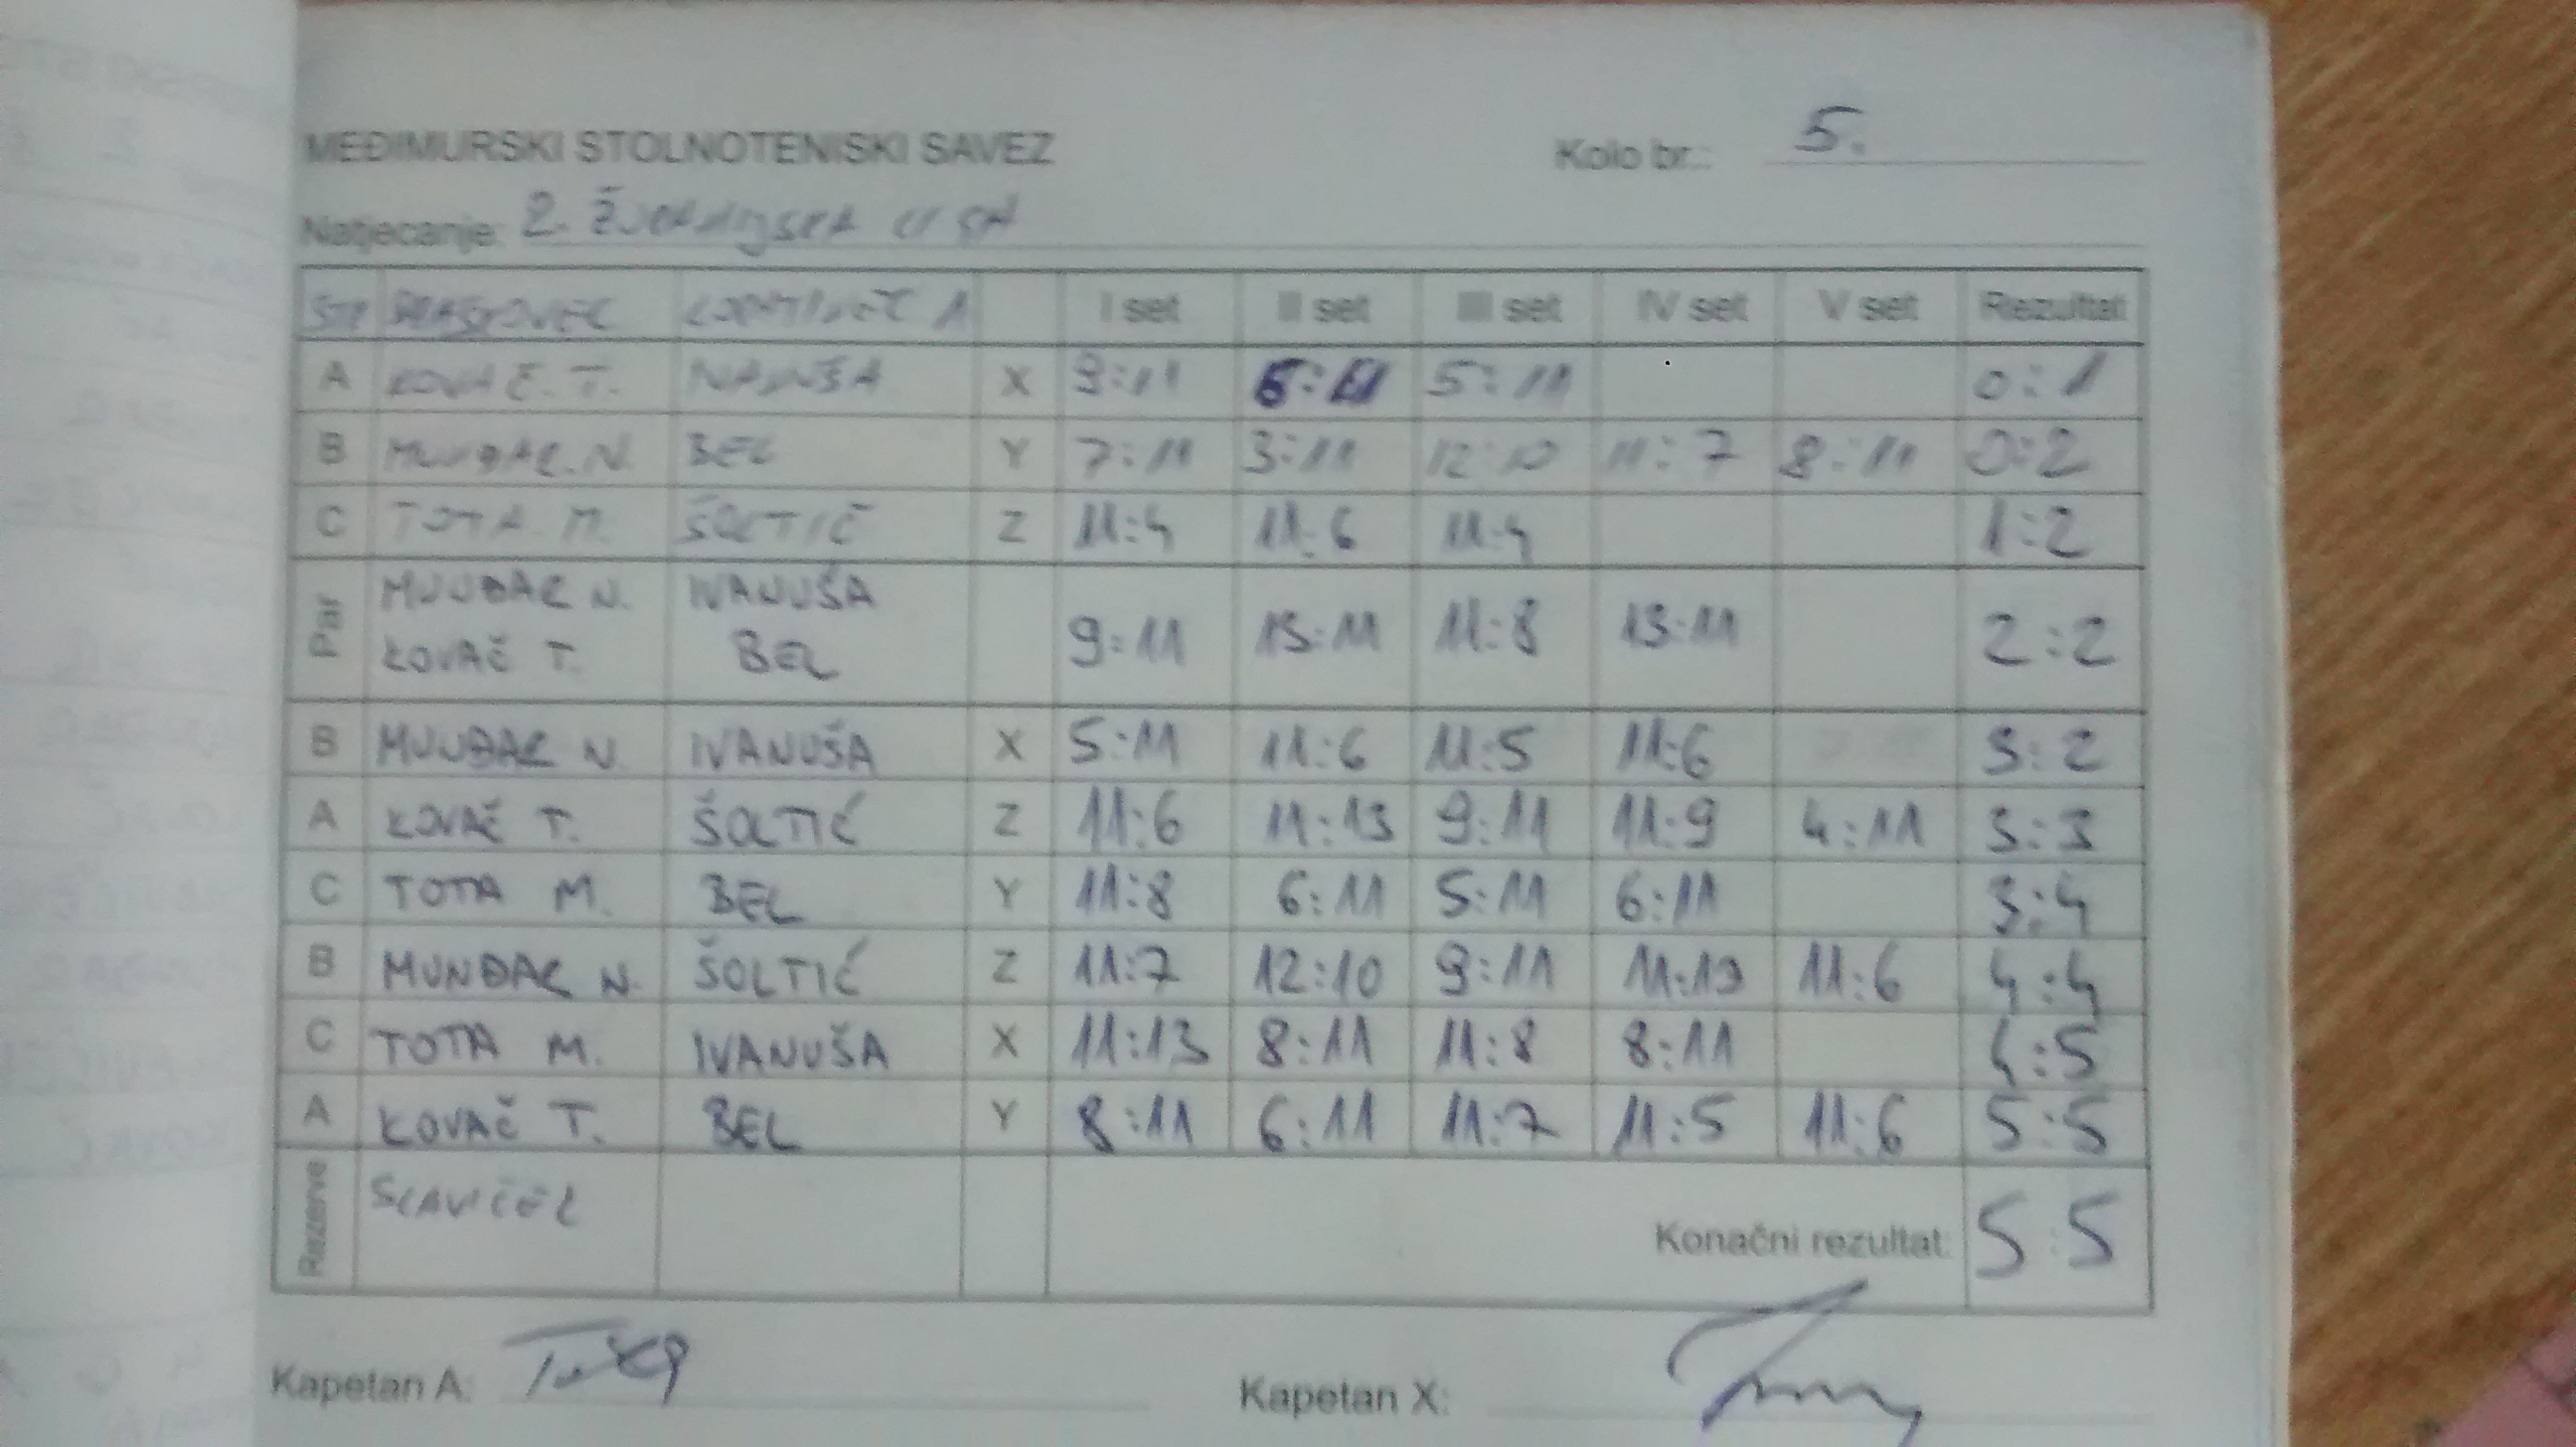 MEĐIMURSKI STOLNOTENISKI SAVEZ
Kolo br.: 5.
Natjecanje: 2. ŽUPANIJSKA LIGA
I set II set III set IV set V set Rezultat
A KOVAČ. T. X 9:11 6:11 5:11 0:1
B MUNĐAR. N. BEL Y 7:11 3:11 12:10 11:7 8:11 0:2
C TOTA M. ŠOLTIĆ Z 11:4 11:6 11:4 1:2
Par MUNĐAR N. IVANUŠA
KOVAČ T. BEL 9:11 13:11 11:8 13:11 2:2
B MUNĐAR N. IVANUŠA X 5:11 11:6 11:5 11:6 3:2
A KOVAČ T. ŠOLTIĆ Z 11:6 11:13 9:11 11:9 4:11 3:3
C TOTA M. BEL Y 11:8 6:11 5:11 6:11 3:4
B MUNĐAR N. ŠOLTIĆ Z 11:7 12:10 9:11 11:13 11:6 4:4
C TOTA M. IVANUŠA X 11:13 8:11 11:8 8:11 4:5
A KOVAČ T. BEL Y 8:11 6:11 11:7 11:5 11:6 5:5
Rezerve SLAVIČEK
Konačni rezultat: 5:5
Kapetan A:
Kapetan X: